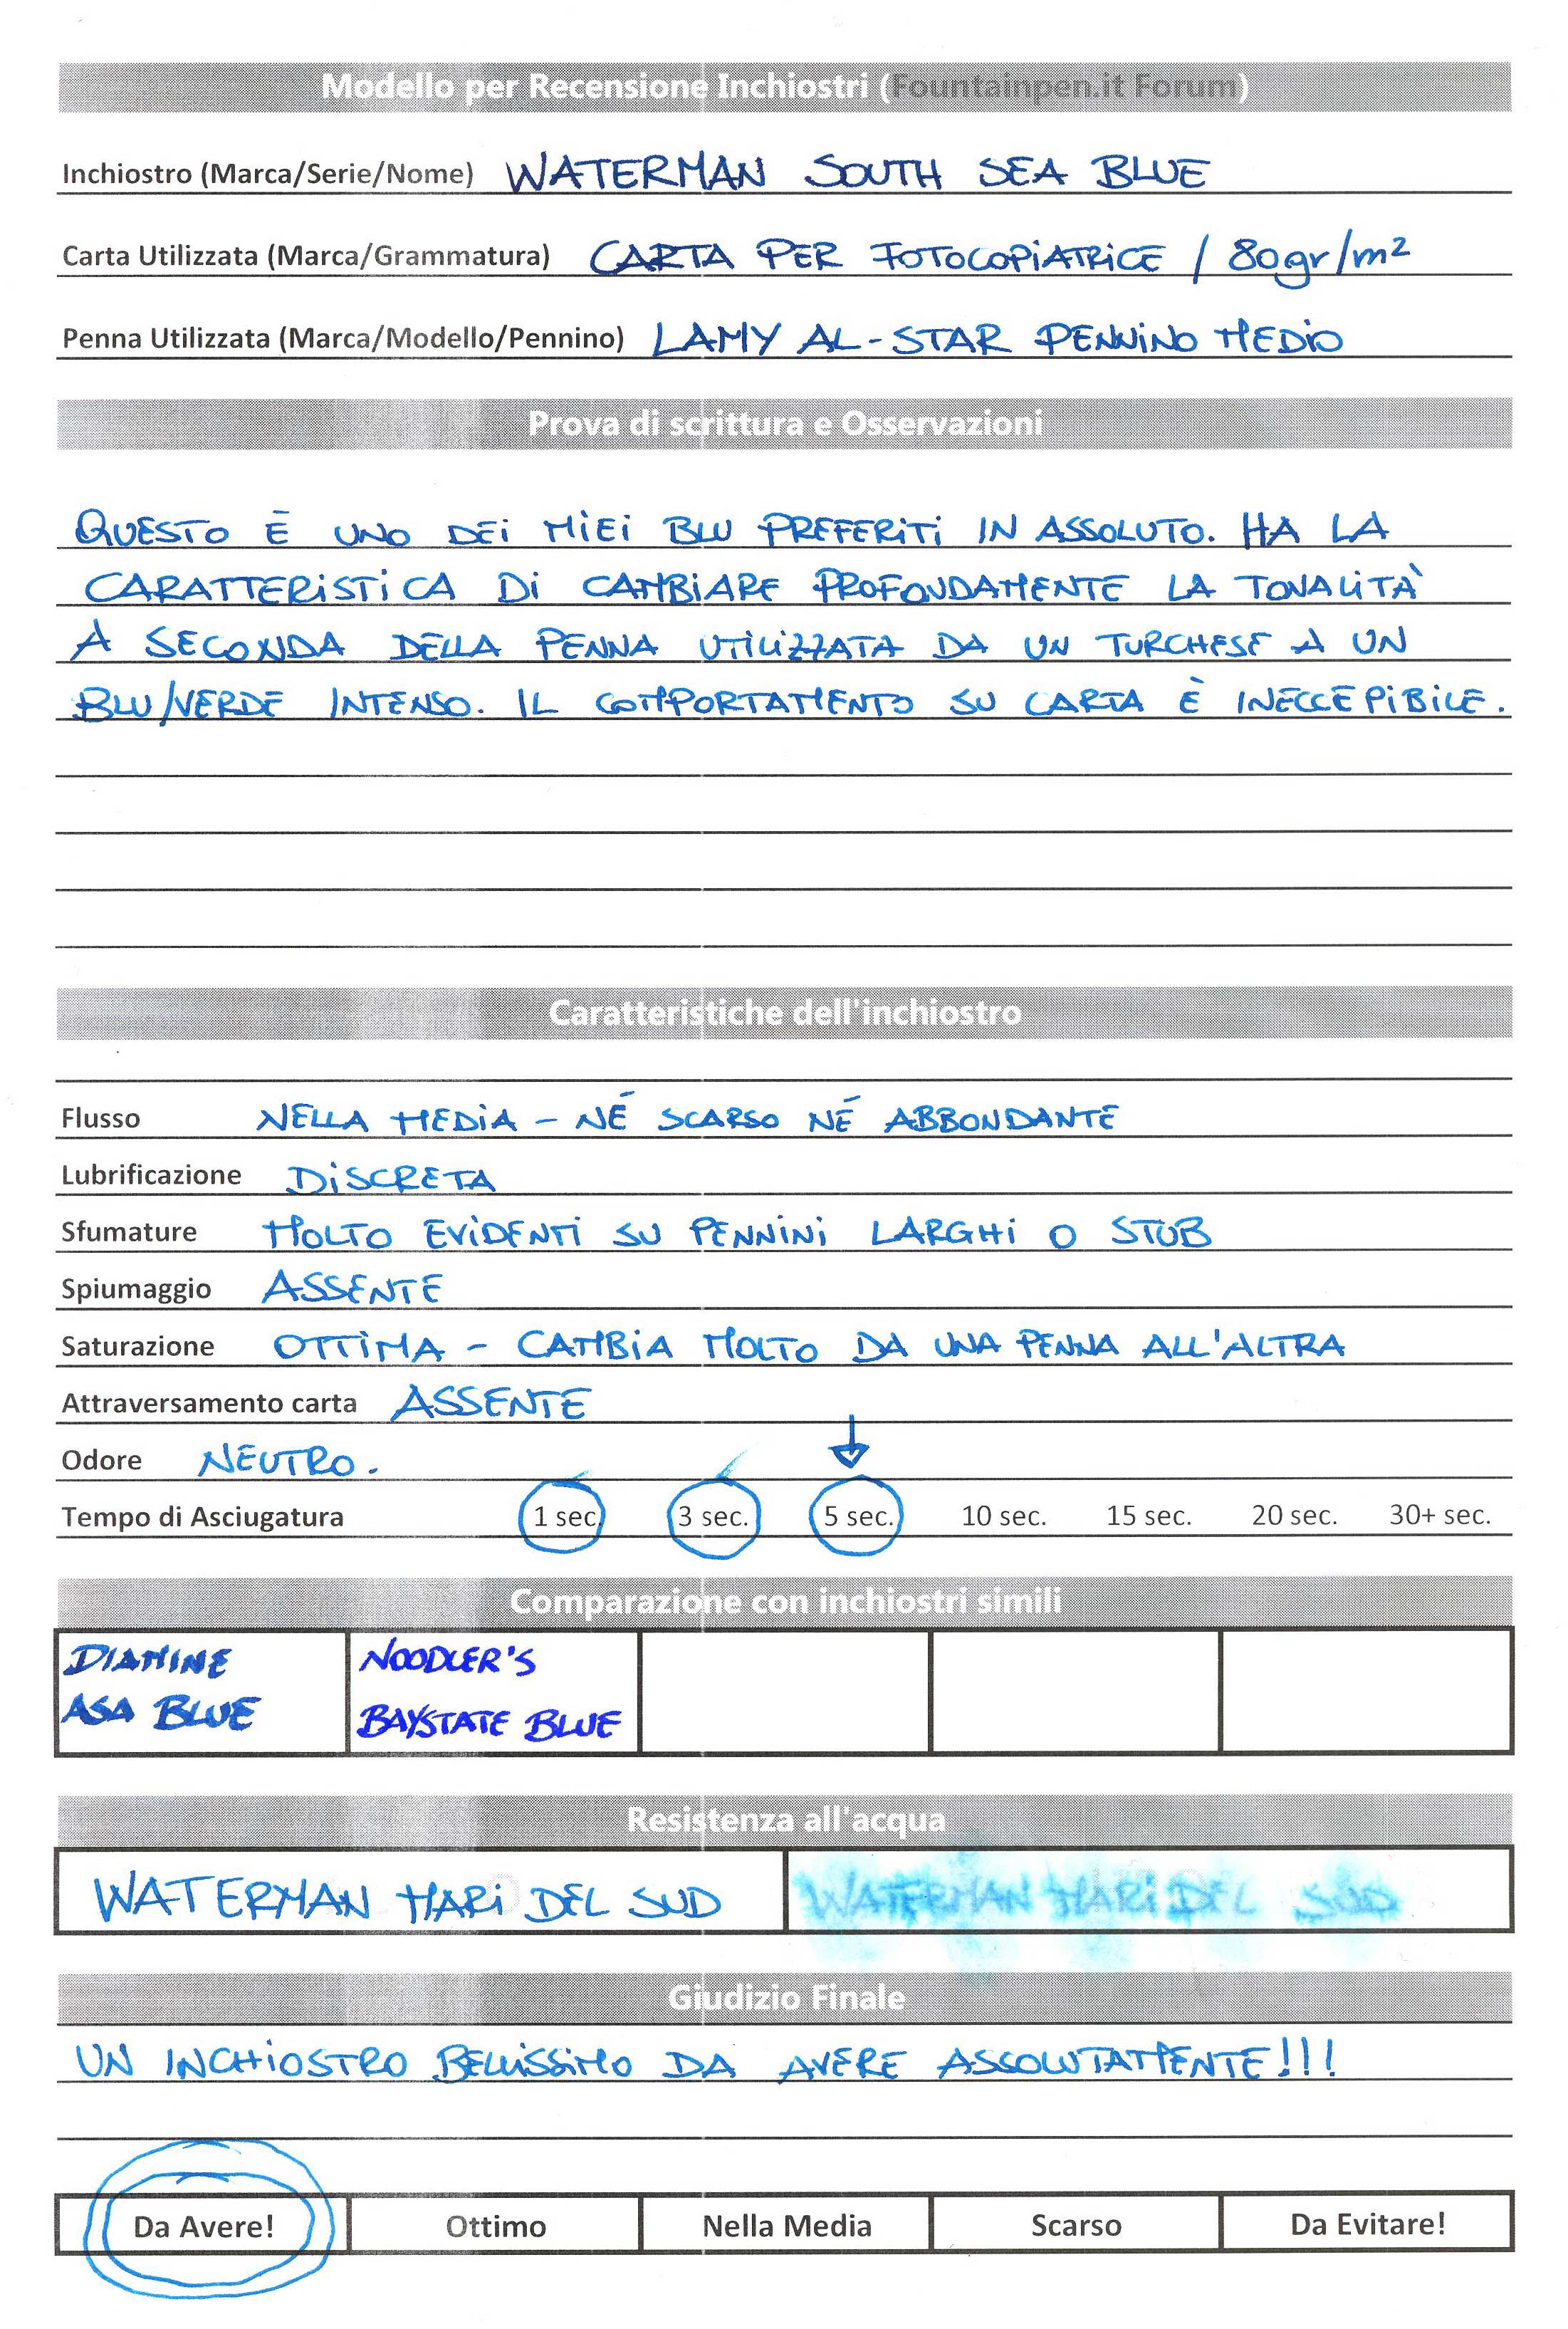 Modello per Recensione Inchiostri (Fountainpen.it Forum)
Inchiostro (Marca/Serie/Nome) WATERMAN SOUTH SEA BLUE
Carta Utilizzata (Marca/Grammatura) CARTA PER FOTOCOPIATRICE / 80gr/m²
Penna Utilizzata (Marca/Modello/Pennino) LAMY AL-STAR PENNINO MEDIO
Prova di scrittura e Osservazioni
QUESTO È UNO DEI MIEI BLU PREFERITI IN ASSOLUTO. HA LA
CARATTERISTICA DI CAMBIARE PROFONDAMENTE LA TONALITÀ
A SECONDA DELLA PENNA UTILIZZATA DA UN TURCHESE A UN
BLU/VERDE INTENSO. IL COMPORTAMENTO SU CARTA È INECCEPIBILE.
Caratteristiche dell'inchiostro
Flusso NELLA MEDIA - NÉ SCARSO NÉ ABBONDANTE
Lubrificazione DISCRETA
Sfumature MOLTO EVIDENTI SU PENNINI LARGHI O STUB
Spiumaggio ASSENTE
Saturazione OTTIMA - CAMBIA MOLTO DA UNA PENNA ALL'ALTRA
Attraversamento carta ASSENTE
Odore NEUTRO.
Tempo di Asciugatura 1 sec. 3 sec. 5 sec. 10 sec. 15 sec. 20 sec. 30+ sec.
Comparazione con inchiostri simili
DIAMINE NOODLER'S
ASA BLUE BAYSTATE BLUE
Resistenza all'acqua
WATERMAN MARI DEL SUD WATERMAN MARI DEL SUD
Giudizio Finale
UN INCHIOSTRO BELLISSIMO DA AVERE ASSOLUTAMENTE!!!
Da Avere! Ottimo Nella Media Scarso Da Evitare!